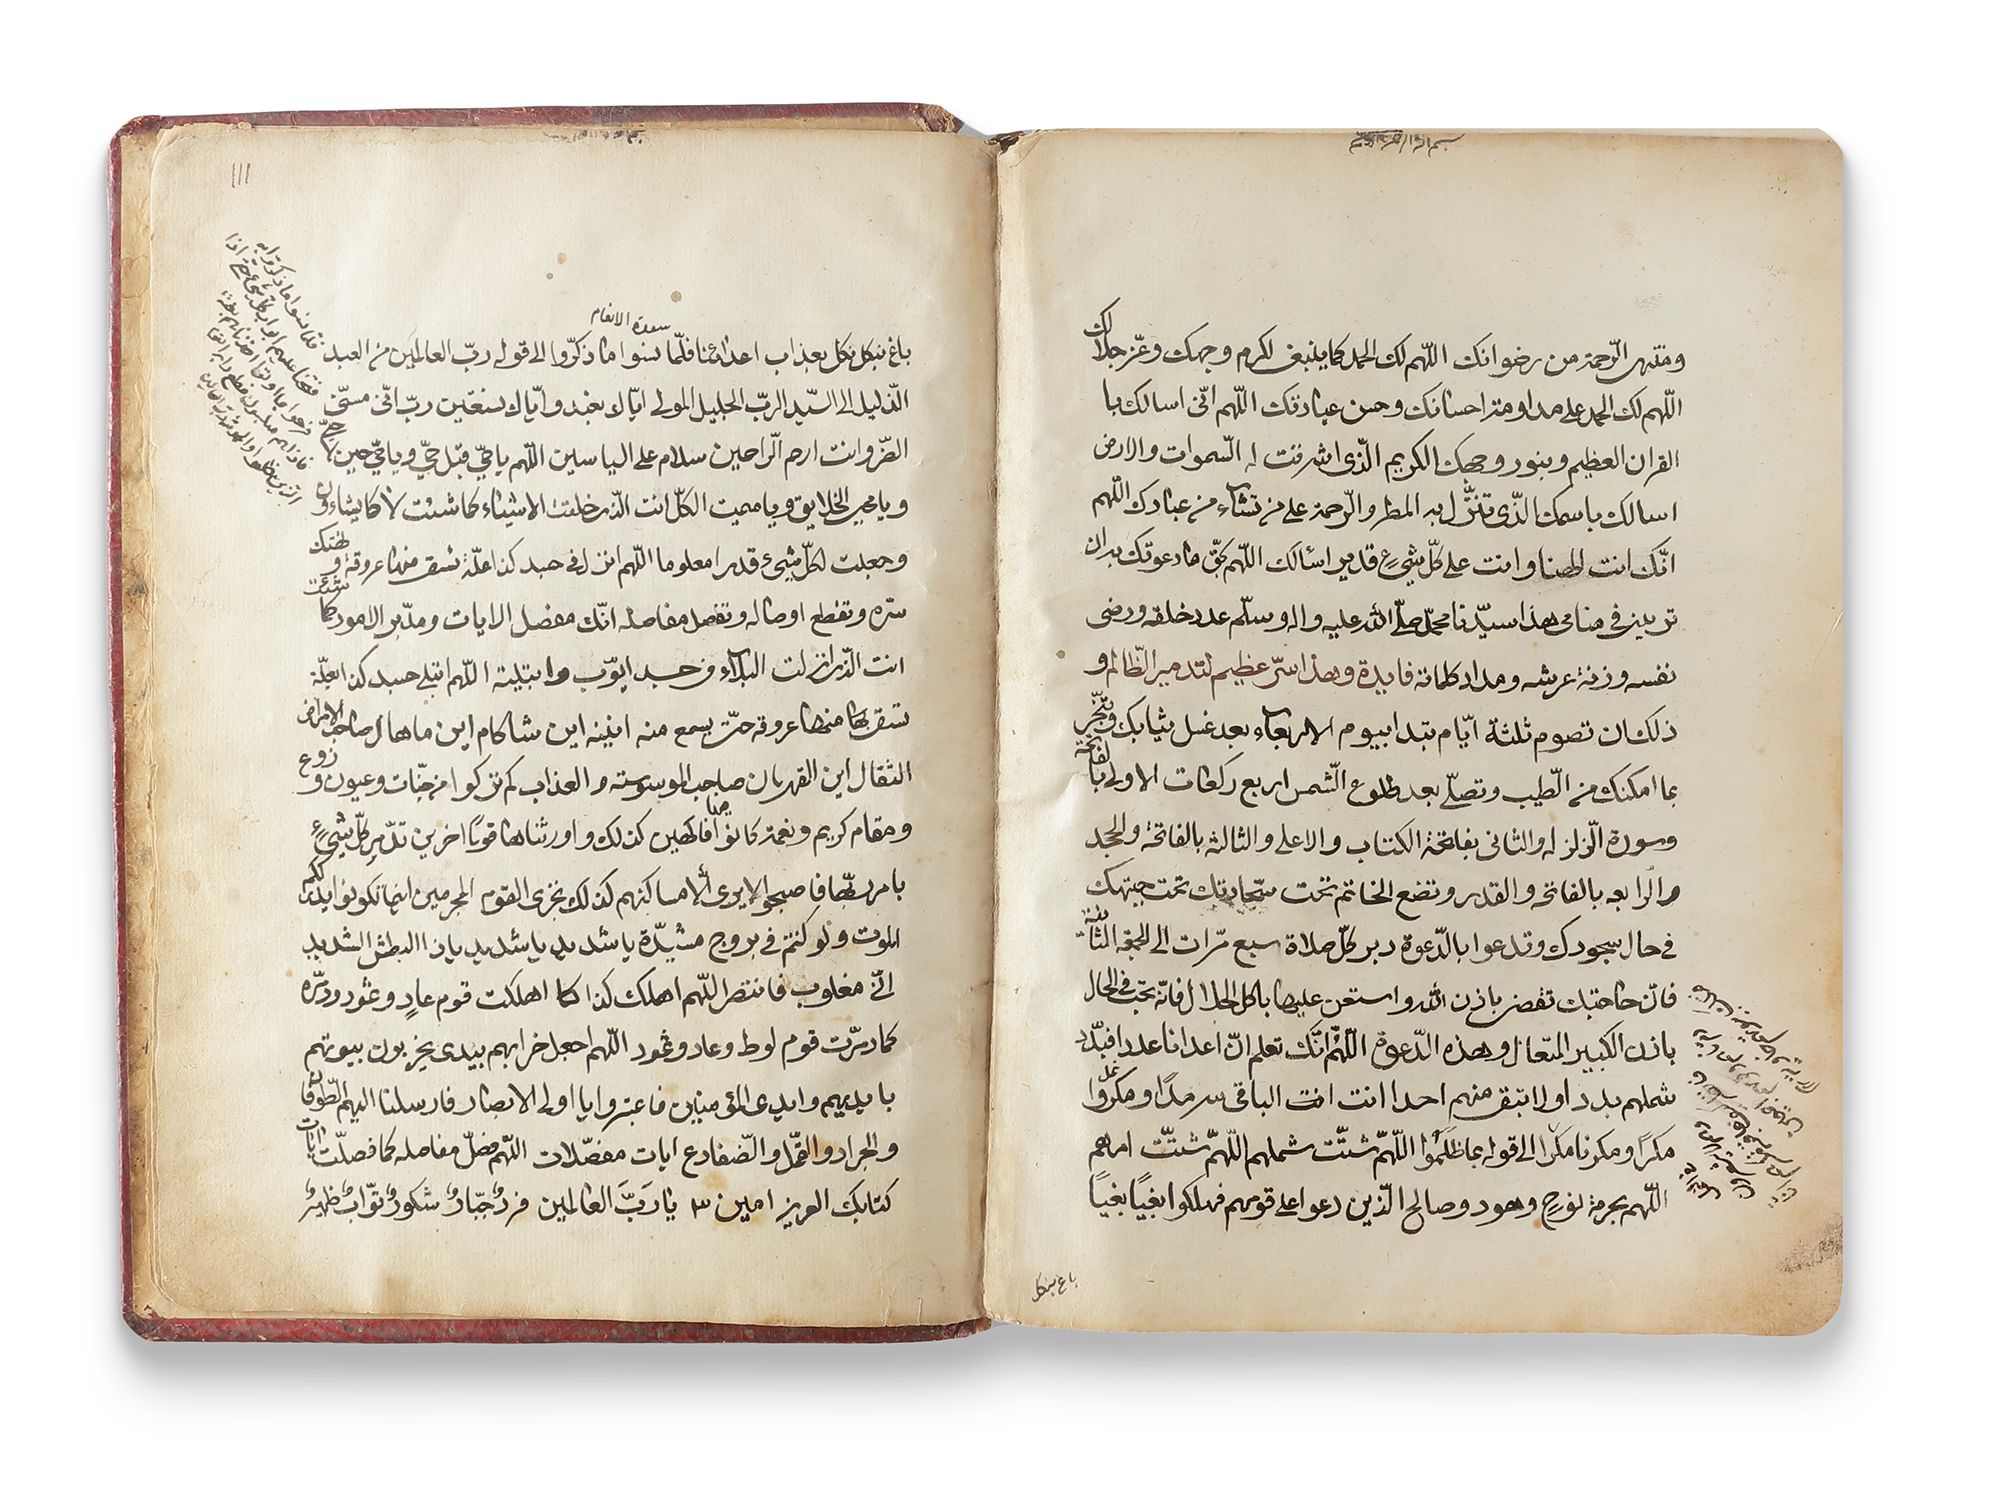 بسم الله الرحمن الرحيم
ومنتهى الرّحمة من رضوانك اللّهم لك الحمد كما ينبغى لكرم وجهك وعزّ جلالك
اللّهم لك الحمد على مداومة احسانك وحسن عبادتك اللّهم انّى اسالك با
القران العظيم وبنور وجهك الكريم الّذى اشرقت له السّموات والارض
اسالك باسمك الّذى تنزّل به المطر والّرحمة على من تشاء من عبادك اللّهم
انّك انت الهنا وانت على كلّ شيءٍ قدير اسألك اللّهم بحقّ ما دعوتك به ان
ترينى فى منامى هذا سيّدنا محمّد صلّى الله عليه واله وسلّم عدد خلقه ورضى
نفسه وزنة عرشه ومداد كلماته فايدة وهذا سرّ عظيم لتدمير الظّالم و
ذلك ان تصوم ثلثة ايّام تبدا بيوم الاربعاء بعد غسل ثيابك وتبخّر
بما امكنك من الّطيب وتصلّى بعد طلوع الشّمس اربع ركعات الاولى بالفاتحة
وسورة الّزلزله والثانى بفاتحة الكتاب والاعلى والثالثة بالفاتحة والحمد
والرّابعه بالفاتحه والقدر وتضع الخاتم تحت سجّادتك تحت جبهتك
فى حال سجودك وتدعوا بالدّعوة دبر كلّ صلاة سبع مرّات الى الجمعه الثانية
فانّ حاجتك تقضى باذن الله واستعن عليها باكل الحلال فانّه يجب فى الحال
باذن الكبير المتعال وهذه الدّعوة اللّهم انّك تعلم انّ اعدانا عددا فبدّد
شملهم بددا ولا تبق منهم احدا انت انت الباقى سرمدًا ومكروا
مكرًا ومكرنا مكرًا الى قوله بما ظَلَموا اللّهمّ شتّت شملهم اللّهمّ شتّت امرهم
اللّهم بحرمة نوحٍ وهود وصالح الّذين دعوا على قومهم فهلكوا بغيًا بغيًا
باغ بنكل
١١١
سورة الانعام
باغ بنكل نكل بعذاب اعدائنا فلمّا نسوا ما ذكّروا الى قوله ربّ العالمين من العبد
الذّليل الى السّيد الربّ الجليل المولى ايّاك نعبد وايّاك نستعين ربّ انّى مسّنى
الضّرّ وانت ارحم الّراحمين سلام على الياسين اللّهم يا حيّ قبل حيّ ويا حيّ حين لا حيّ
ويا محيى الخلايق ويا مميت الكلّ انت الّذى خلقت الاشياء كما شئت لا كما يشاءون
وجعلت لكلّ شيءٍ قدرا معلوما اللّهم انزل فى جسد كذا علّة تسق منها عروقه و
سرّه وتقطع اوصاله وتفصل مفاصله انّك مفصل الايات ومدّبر الامور كما
انت الّذى انزلت البلاء فى جسد ايّوب وابتليته اللّهم ابتلى جسد كذا بعلّة
تسق بها منها عروقه حتى يسمع منه انينه اين شاكام اين ماهال صاحب الامراض
الثقال اين القهرمان صاحب الموسوسته والعذاب كم تركوا من جنّات وعيون وزروع
ومقام كريم ونعمة كانوا فيها فاكهين كذلك واورثناها قومًا اخرين تدّمر كلّ شيءٍ
بامر ربّها فاصبحوا لا يرى الّا مساكنهم كذلك نجزى القوم المجرمين اينما تكونوا يدرككم
الموت ولو كنتم فى بروج مشيّدة يا شديد يا شديد يا ذا البطش الشديد
انّى مغلوب فانتصر اللّهم اهلك كذا كما اهلكت قوم عادٍ وثمود ودمّره
كما دمرّت قوم لوط وعاد وثمود اللّهم اجعل خرابهم بيدى يخربون بيوتهم
بايديهم وايدى المؤمنين فاعتبروا يا اولى الابصار فارسلنا اليهم الطّوفان
والجراد والقمّل والضّفادع ايات مفصّلات اللّهم فصّل مفاصله كما فصلّت ايات
كتابك العزيز امين ٣ يا رَبَّ العالمين فردٌ جبّارٌ شكورٌ توّابٌ ظهيرٌ
فلمّا نسوا ما ذكّروا به
فتحنا عليهم ابواب كلّ شيء حتى اذا
فرحوا بما اوتوا اخذناهم بغتة
فاذا هم مبلسون فقطع دابر القوم
الذين ظلموا والحمد لله رب العالمين